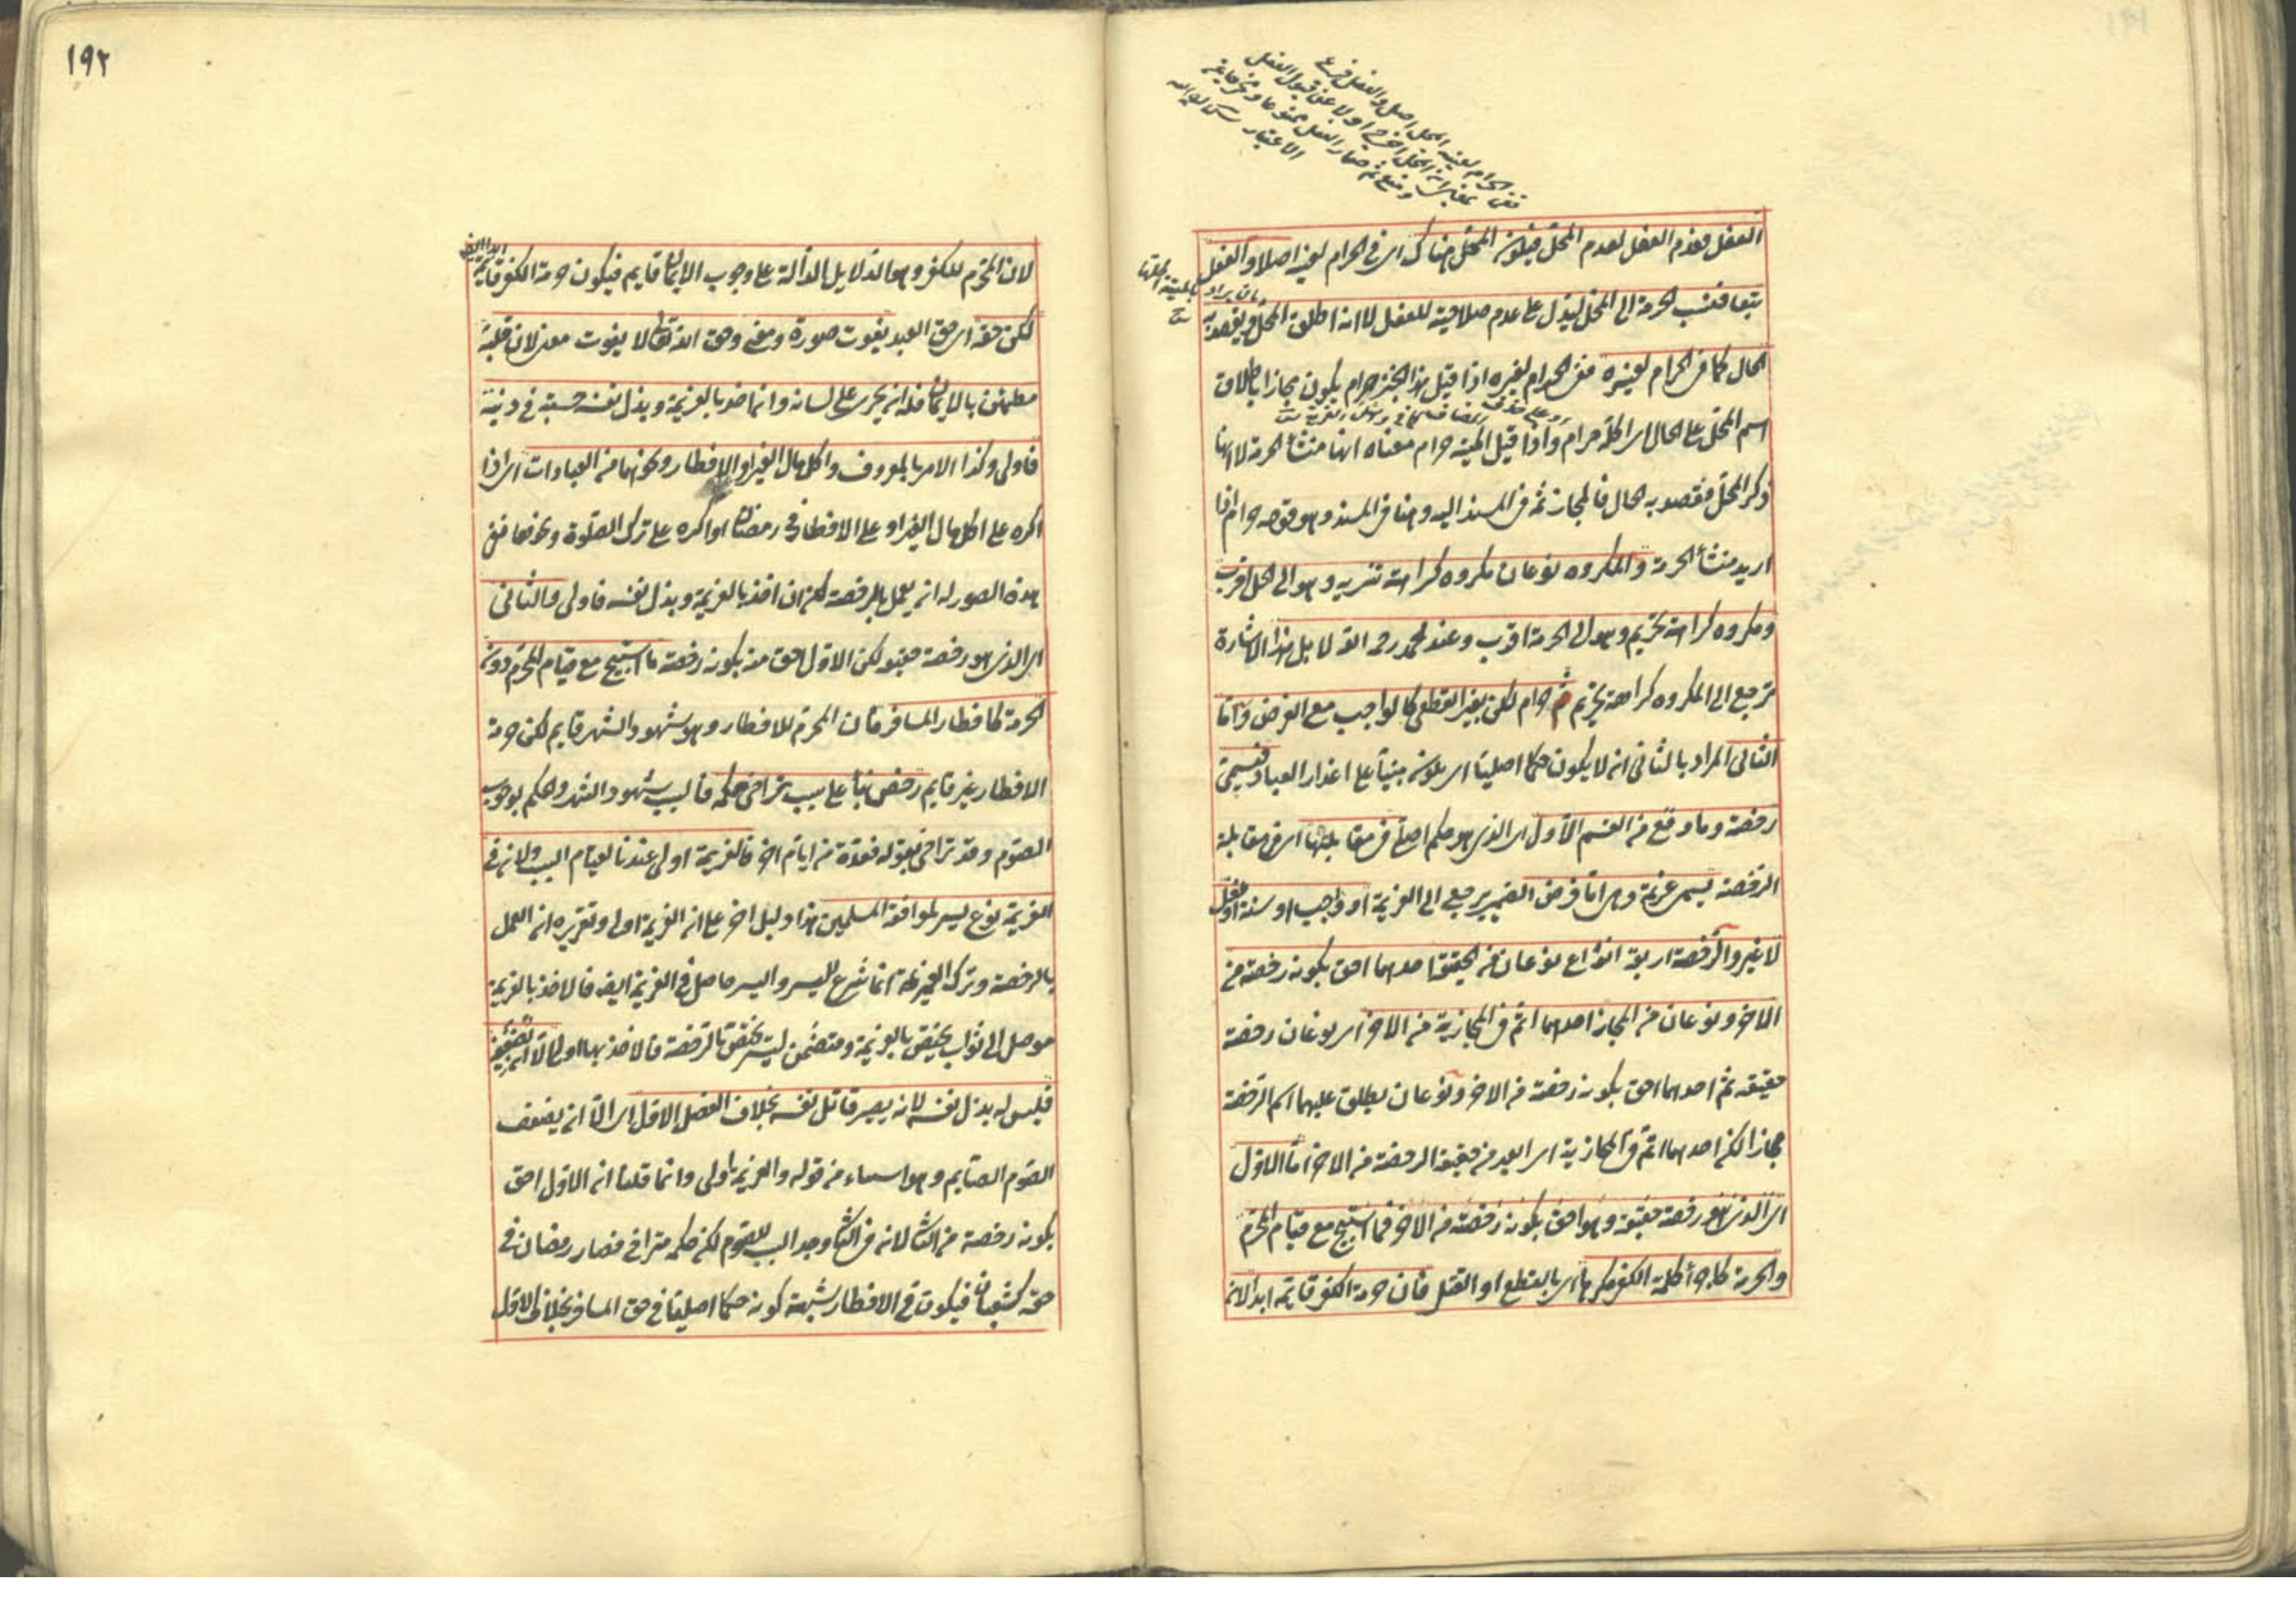 ١٩٢
الحرام لعينه المحل اصل والفعل فرع
الاعتبار
الفعل فعدم الفعل لعدم المحل فيكون المحل هناك اى فى الحرام لعينه اصلا والفعل
تبعا فتنسب الحرمة الى المحل ليدل على عدم صلاحيته للفعل لا انه اطلق المحل ويقصد به
الحال كما فى الحرام لغيره ففى الحرام لغيره اذا قيل هذا الخبز حرام يكون مجازا باطلاق
اسم المحل على الحال اى اكله حرام واذا قيل الميتة حرام معناه انها منشأ الحرمة لا انها
ذكر المحل فقصد به الحال فالمجاز ثمه فى المسند اليه وهنا فى المسند وهو قوله حرام اذا
اريد منشأ الحرمة والمكروه نوعان مكروه كراهة تنزيه وهو الى الحل اقرب
ومكروه كراهة تحريم وهو الى الحرمة اقرب وعند محمد رحمه الله لا بل هذا الاشارة
ترجع الى المكروه كراهة تحريم حرام لكن بغير القطعى كالواجب مع الفرض واما
الثانى المراد بالثانى ان لا يكون حكما اصليا اى يكون مبنيا على اعذار العباد فيسمى
رخصة وما وقع من القسم الاول اى الذى هو حكم اصلى فى مقابلتها اى فى مقابلة
الرخصة يسمى عزيمة وهى اما فرض الضمير يرجع الى العزيمة او واجب او سنة او نفل
لا غير والرخصة اربعة انواع نوعان من الحقيقة احدهما احق بكونه رخصة من
الاخر ونوعان من المجاز احدهما اتم فى المجازية من الاخر اى نوعان رخصة
حقيقة ثم احدهما احق بكونه رخصة من الاخر ونوعان يطلق عليهما اسم الرخصة
مجازا لكن احدهما اتم فى المجازية اى ابعد من حقيقة الرخصة من الاخر اما الاول
اى الذى هو رخصة حقيقة وهو احق بكونه رخصة من الاخر فما استبيح مع قيام المحرم
والحرمة كاجراء كلمة الكفر مكرها اى بالقطع او القتل فان حرمة الكفر قائمة ابدا لانه
لان المحرم للكفر وهو الدلايل الدالة على وجوب الايمان قايم فيكون حرمة الكفر قايمة
لكن حقه اى حق العبد يفوت صورة ومعنى وحق الله تعالى لا يفوت معنى لان قلبه
مطمئن بالايمان فله ان يجرى على لسانه وان اخذ بالعزيمة وبذل نفسه حسبة فى دينه
فاولى وكذا الامر بالمعروف واكل مال الغير والافطار ونحوها من العبادات اى اذا
اكره على اكل مال الغير او على الافطار فى رمضان او اكره على ترك الصلوة ونحوها ففى
هذه الصور له ان يعمل بالرخصة لكن ان اخذ بالعزيمة وبذل نفسه فاولى والثانى
اى الذى هو رخصة حقيقة لكن الاول احق منه بكونه رخصة ما استبيح مع قيام المحرم دون
الحرمة كافطار المسافر فان المحرم للافطار وهو شهود الشهر قايم لكن حرمة
الافطار غير قايم رخص بناء على سبب تراخى حكمه فالسبب شهود الشهر والحكم بوجوب
الصوم وقد تراخى بقوله فعدة من ايام اخر فالعزيمة اولى عندنا لقيام السبب ولان فى
العزيمة نوع يسر لموافقة المسلمين هذا دليل اخر على ان العزيمة اولى وتقريره ان العمل
بالرخصة وترك العزيمة انما شرع لليسر واليسر حاصل فى العزيمة ايضا فالاخذ بالعزيمة
موصل الى ثواب يختص بالعزيمة ومتضمن ليسر يختص بالرخصة فالاخذ بها اولى الا ان يضعفه
فليس له بذل نفسه لانه يصير قاتل نفسه بخلاف الفصل الاول اى الا ان يضعف
الصوم الصايم وهو استثناء من قوله والعزيمة اولى وانما قلنا ان الاول احق
بكونه رخصة من الثانى لانه فى الثانى وجد السبب للصوم لكن حكمه متراخى فصار رمضان فى
حقه كشعبان فيكون فى الافطار شبهة كونه حكما اصليا فى حق المسافر بخلاف الاول